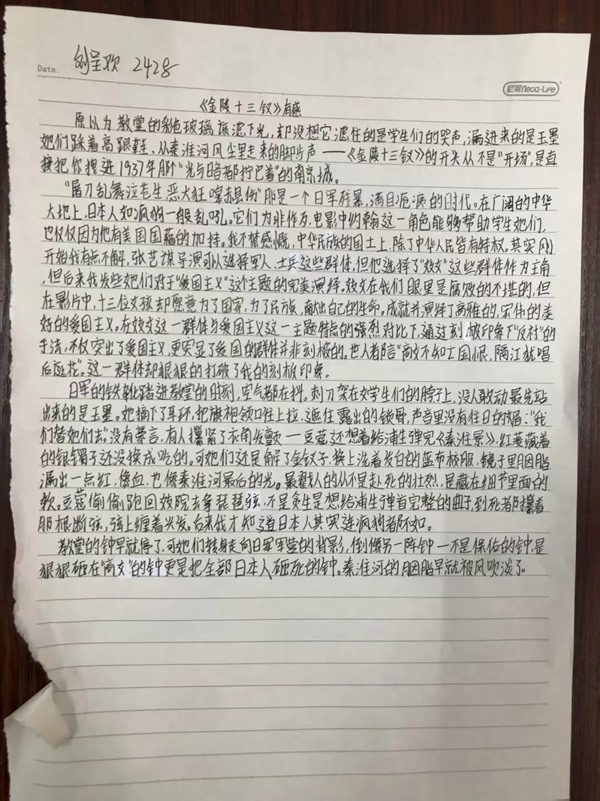 Date:
刘呈欢 2428
记览Neca-Life
《金陵十三钗》有感
原以为教堂的彩色玻璃该滤下光,却没想它滤住的是学生们的哭声,漏进来的是玉墨
她们踩着高跟鞋、从秦淮河风尘里走来的脚步声——《金陵十三钗》的开头从不是“开场”,是直
接把你拽进1937年那个“光与暗都拧巴着”的南京城。
“屠刀乱舞泣老生 恶犬狂 悬”那是一个日军残暴,满目疮痍的时代。在广阔的中华
大地上,日本人如疯狗一般乱吼。它们为非作歹,电影中约翰这一角色能够帮助学生她们,
也仅仅因为他有美国国籍的加持。我不禁感慨,中华民族的国土上,除了中华人民皆有特权。其实刚
开始我有点不解,张艺谋导演可以选择军人、士兵这些群体,但他选择了“妓女”这些群体作为主角
,但后来我发些她们对于“爱国主义”这个主题的完美演绎。妓女在我们眼里是腐败的不堪的,但
在影片中,十三位女孩却愿意为了国家,为了民族,献出自己的生命,成就并演绎了高雅的,宏伟的美
好的爱国主义,在妓女这一群体与爱国主义这一主题特点的强烈对比下,通过刻板印象下“反衬”的
手法,不仅突出了爱国主义,更突显了爱国的群体并非刻板的。也人有言“商女不知亡国恨,隔江犹唱
后庭花”。这一群体却狠狠的打破了我的刻板印象。
日军的铁靴踏进教堂的时刻,空气都在抖。刺刀架在女学生们的脖子上,没人敢动最先站
出来的是玉墨。她摘下了耳环,把旗袍领口往上拉,遮住露出的锁骨,声音里没有往日的媚:“我
们替她们去”没有誓言,有人攥紧了衣角发颤——豆蔻还想着给浦生弹完《秦淮景》,红菱藏着
的银镯子还没换成吃的。可她们还是解了金钗子,换上洗着发白的蓝布校服,镜子里胭脂
漏出一点红,像血,也像秦淮河最后的光。最戳人的从不是走死的壮烈,是藏在细节里面的
软。豆蔻偷偷跑回妓院去拿琵琶弦,不是贪生是想给浦生弹首完整的曲子,到死都攥着
那根断弦,弦上缠着头发,后来我才知道日本人其实连疯狗都不如。
教堂的钟早就停了,可她们转身走向日军军营的背影,倒像另一阵钟——不是保佑的钟,是
狠狠砸在“商女”的钟更是把全部日本人砸死的钟。秦淮河的胭脂早就被风吹淡了。